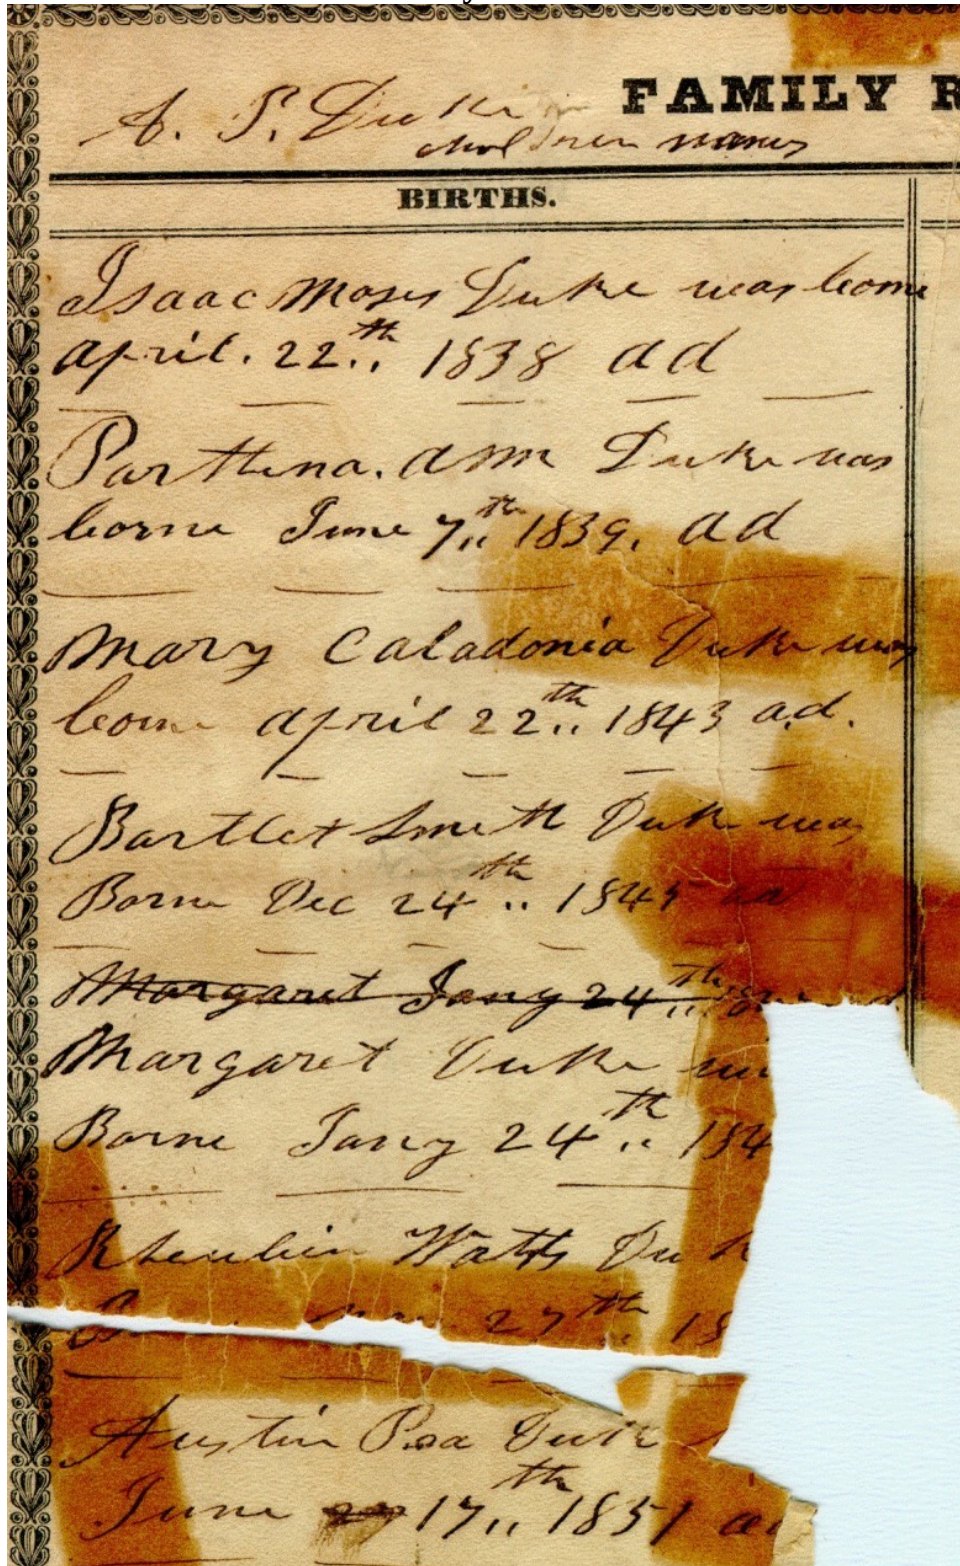 A. P. Duke FAMILY R
children names
BIRTHS.
Isaac Moses Duke was borne
april. 22th 1838 ad
Parthena. ann Duke was
borne June 7th 1839. ad
Mary Caladonia Duke was
borne april 22th 1843 a.d.
Bartlet Smith Duke was
Borne Dec 24th 1845 ad
Margaret Jany 24th
Margaret Duke
Borne Jany 24th 184
Rheubin Watts Duk
27th 18
Austin Duke
June 17th 1851 ad